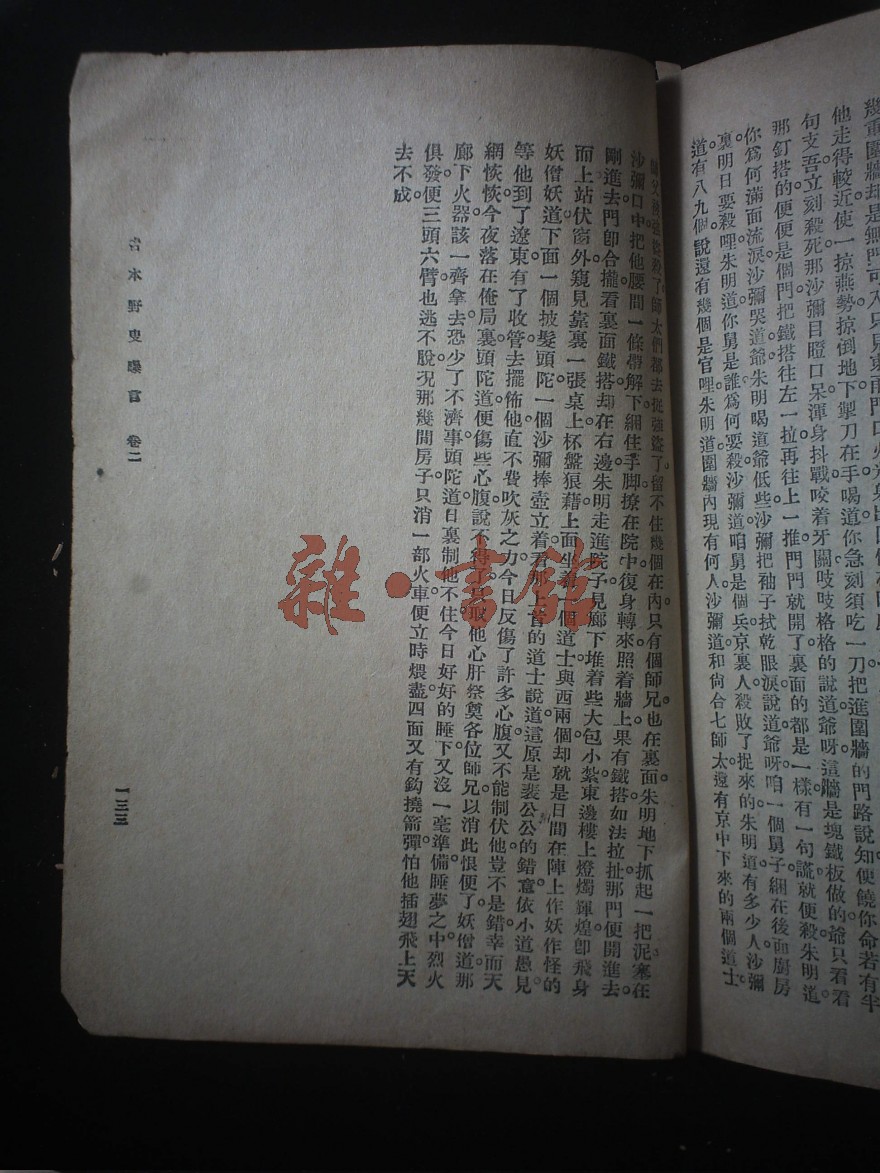 幾重圍牆却是無門可入只見東南門口
他走得較近使一掠燕勢掠倒地下掣刀在手喝道你急刻須吃一刀把進圍牆的門路說知便饒你命若有半
句支吾立刻殺死那沙彌目瞪口呆渾身抖戰咬着牙關吱吱格格的說道爺呀這牆是塊鐵板做的爺只看看
那釘搭的便便是個門把鐵搭往左一拉再往上一推門門就開了裏面的都是一樣有一句謊就便殺朱明道
你爲何滿面流淚沙彌哭道爺朱明喝道爺低些沙彌把袖子拭乾眼淚說道爺呀咱一個舅子綑在後面廚房
裏明日要殺哩朱明道你舅是誰爲何要殺沙彌道咱舅是個兵京裏人殺敗了捉來的朱明道有多少人沙彌
道有八九個說還有幾個是官哩朱明道圍牆內現有何人沙彌道和尙合七師太還有京中下來的兩個道士
師太們都去從強盜了留不住幾個在內只有個師兄也在裏面朱明地下抓起一把泥塞在
沙彌口中把他腰間一條帶解下綑住手脚撩在院中復身轉來照着牆上果有鐵搭如法拉扯那門便開進去
剛進去門卽合攏看裏面鐵搭却在右邊朱明走進院子見廊下堆着些大包小紮東邊樓上燈燭輝煌卽飛身
而上站伏窗外窺見靠裏一張桌上杯盤狼藉上面坐着一個道士與西兩個却就是日間在陣上作妖作怪的
妖僧妖道下面一個披髮頭陀一個沙彌捧壺立着看那上首的道士說道這原是裴公公的錯意依小道愚見
等他到了遼東有了收管去擺佈他直不費吹灰之力今日反傷了許多心腹又不能制伏他豈不是錯幸而天
網恢恢今夜落在俺局裏頭陀道便傷些心腹說不得了只取他心肝祭奠各位師兄以消此恨便了妖僧道那
廊下火器該一齊拿去恐少了不濟事頭陀道日裏制他不住今日好好的睡下又沒一毫準備睡夢之中烈火
俱發便三頭六臂也逃不脫况那幾間房子只消一部火車便立時煨盡四面又有鈎撓箭彈怕他插翅飛上天
去不成
古本野叟曝言 卷二
一三三
雜·書館